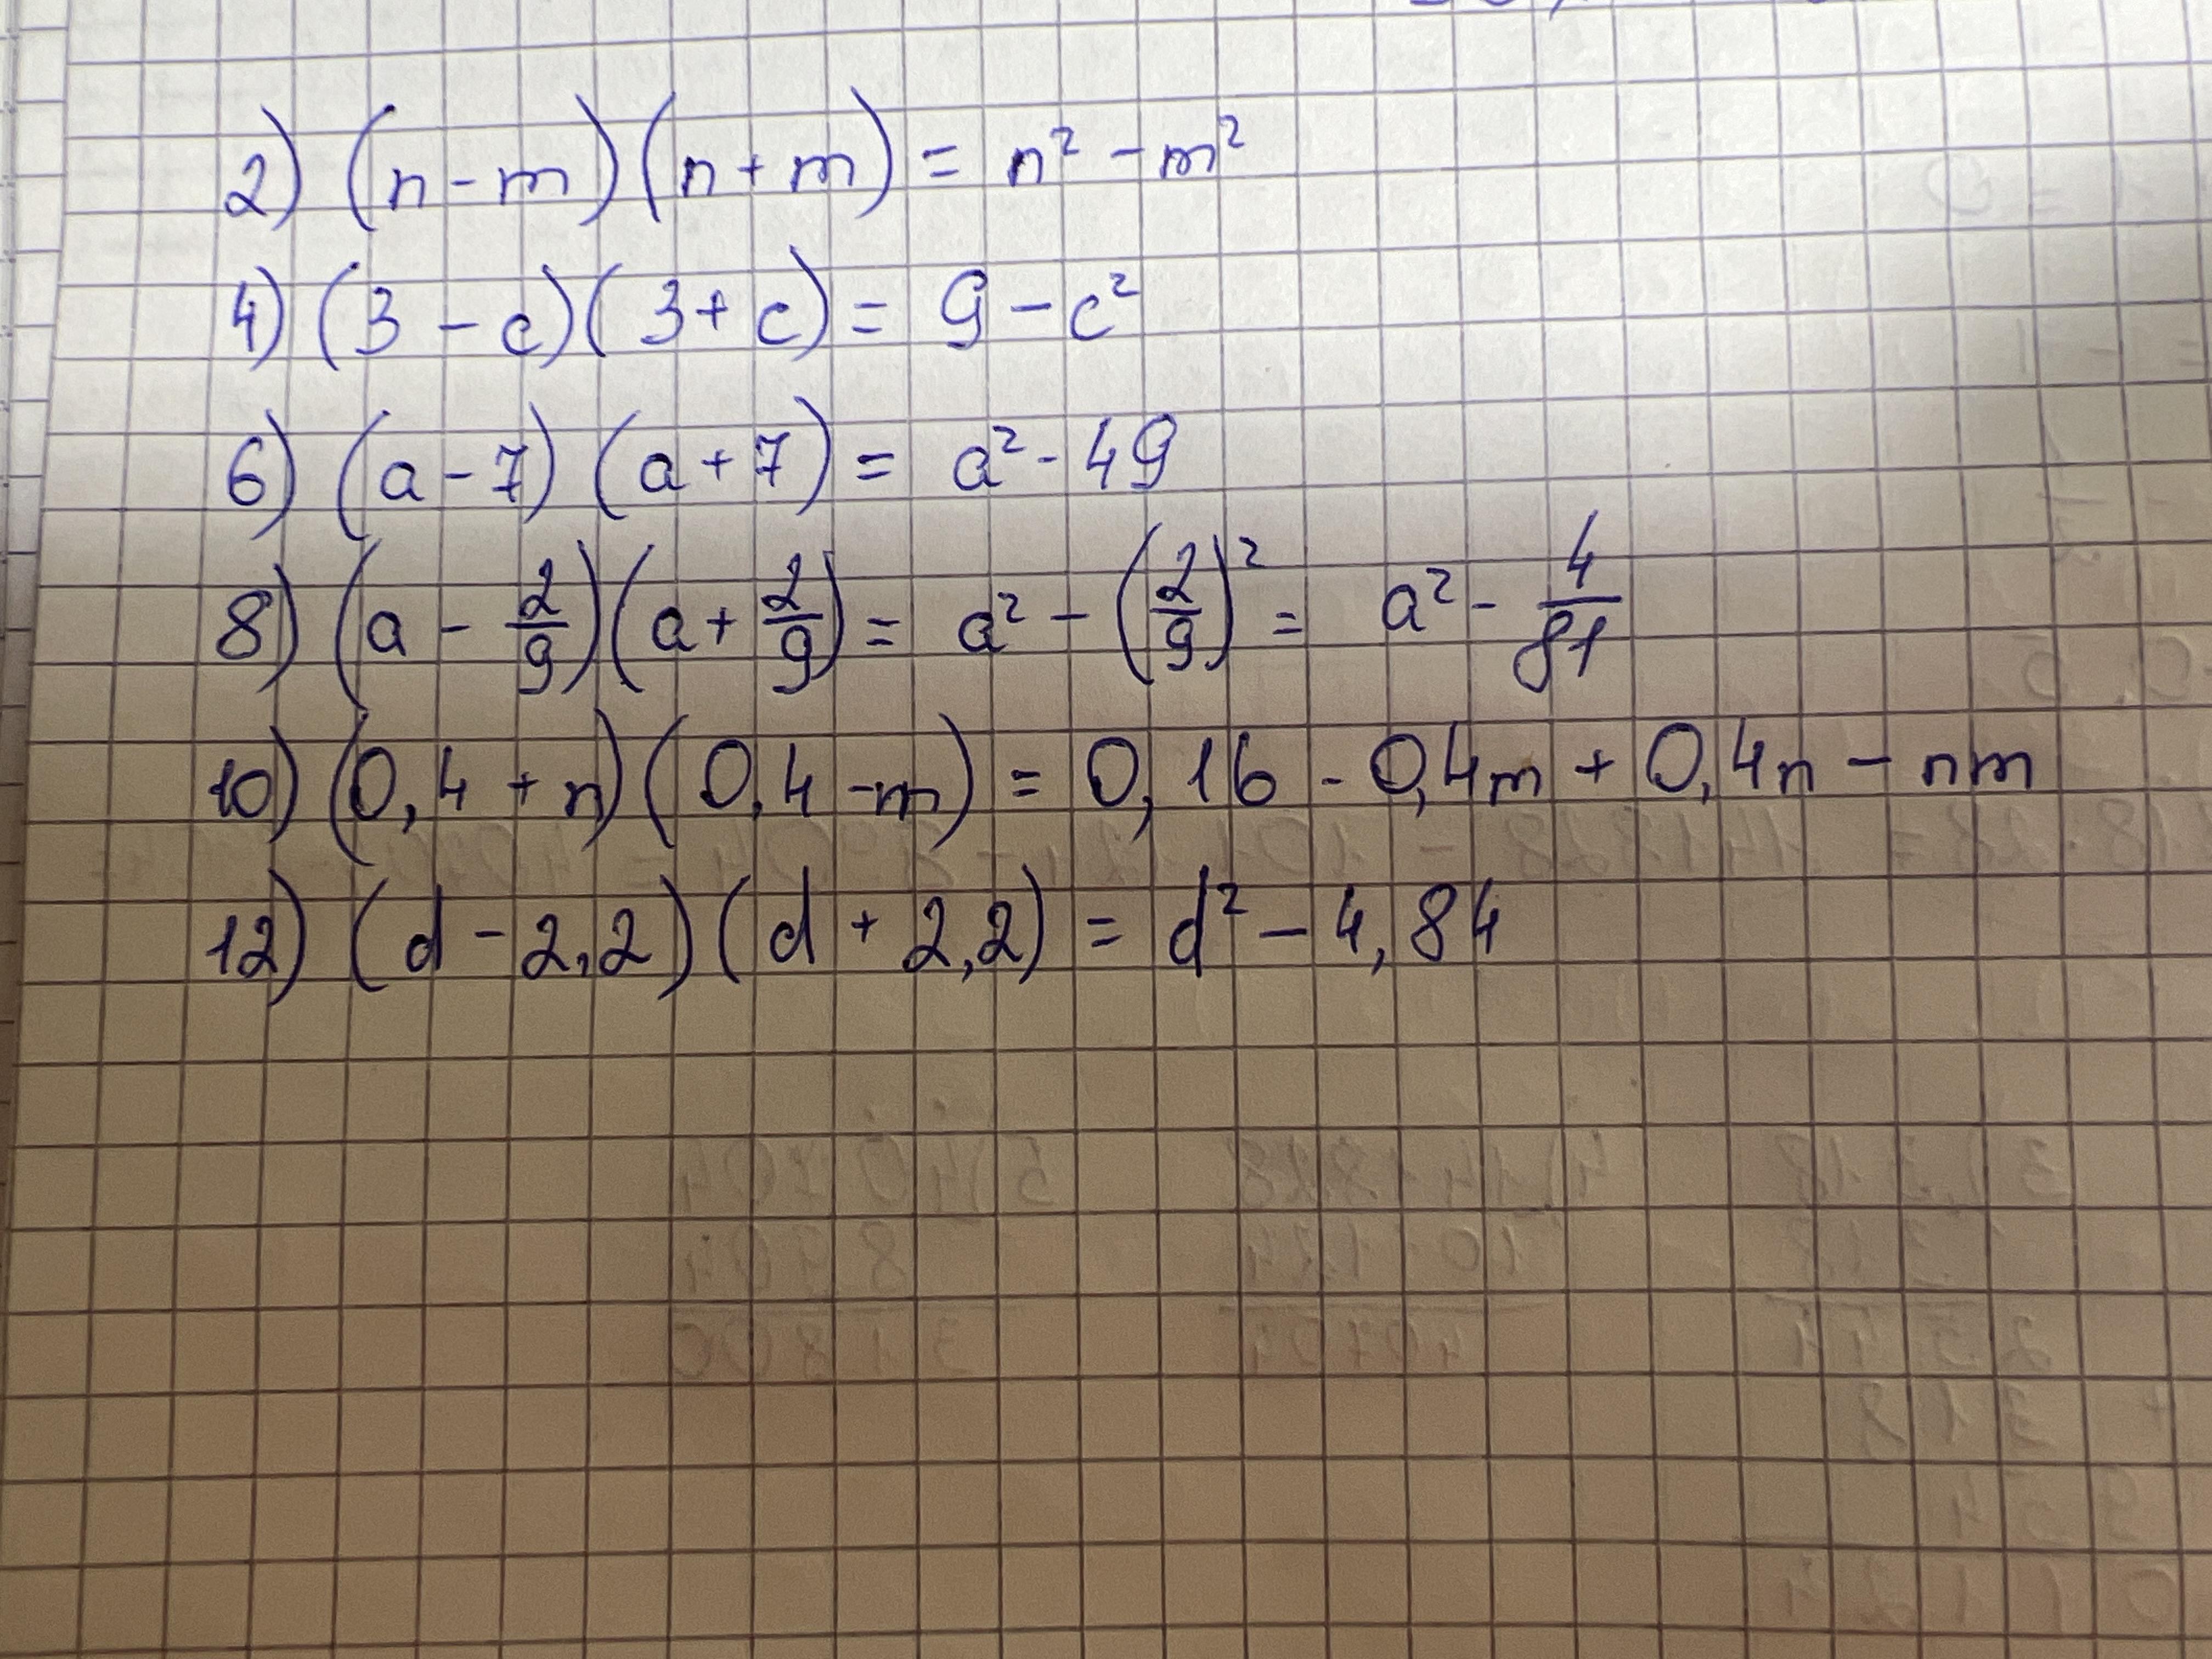 2) (n-m)(n+m) = n² - m²
4) (3 - c)(3 + c) = 9 - c²
6) (a - 7)(a + 7) = a² - 49
8) (a - 2/9)(a + 2/9) = a² - (2/9)² = a² - 4/81
10) (0,4 + n)(0,4 - m) = 0,16 - 0,4m + 0,4n - nm
12) (d - 2,2)(d + 2,2) = d² - 4,84